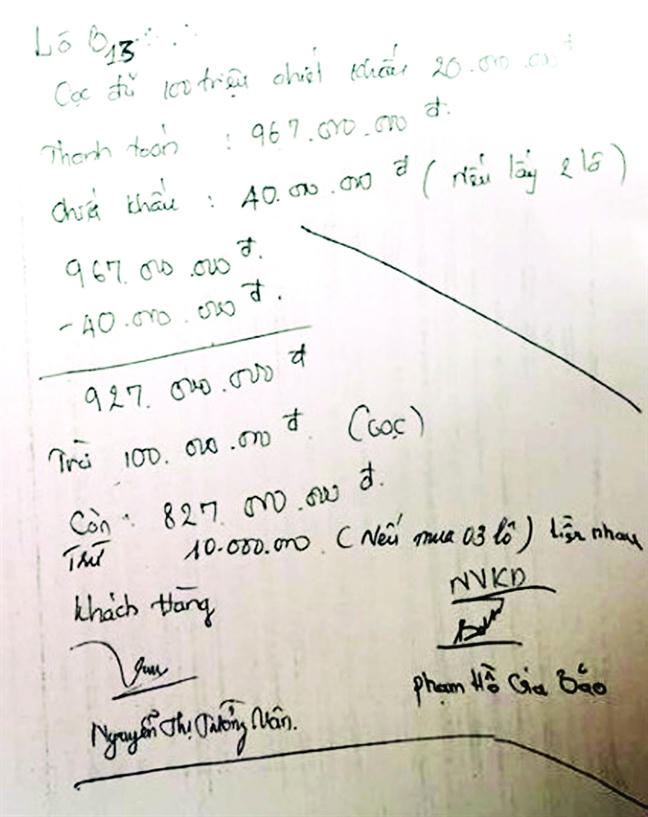 Lô B13
Cọc đủ 100 triệu chiết khấu 20.000.000 đ
Thanh toán : 967.000.000 đ.
Chiết khấu : 40.000.000 đ ( Nếu lấy 2 lô )
967.000.000 đ.
-40.000.000 đ.
927.000.000 đ
Trả 100.000.000 đ. (cọc)
Còn : 827.000.000 đ.
Trừ 10.000.000 . ( Nếu mua 03 lô ) liền nhau
Khách Hàng
NVKD
Phạm Hồ Gia Bảo
Nguyễn Thị Tường Vân.